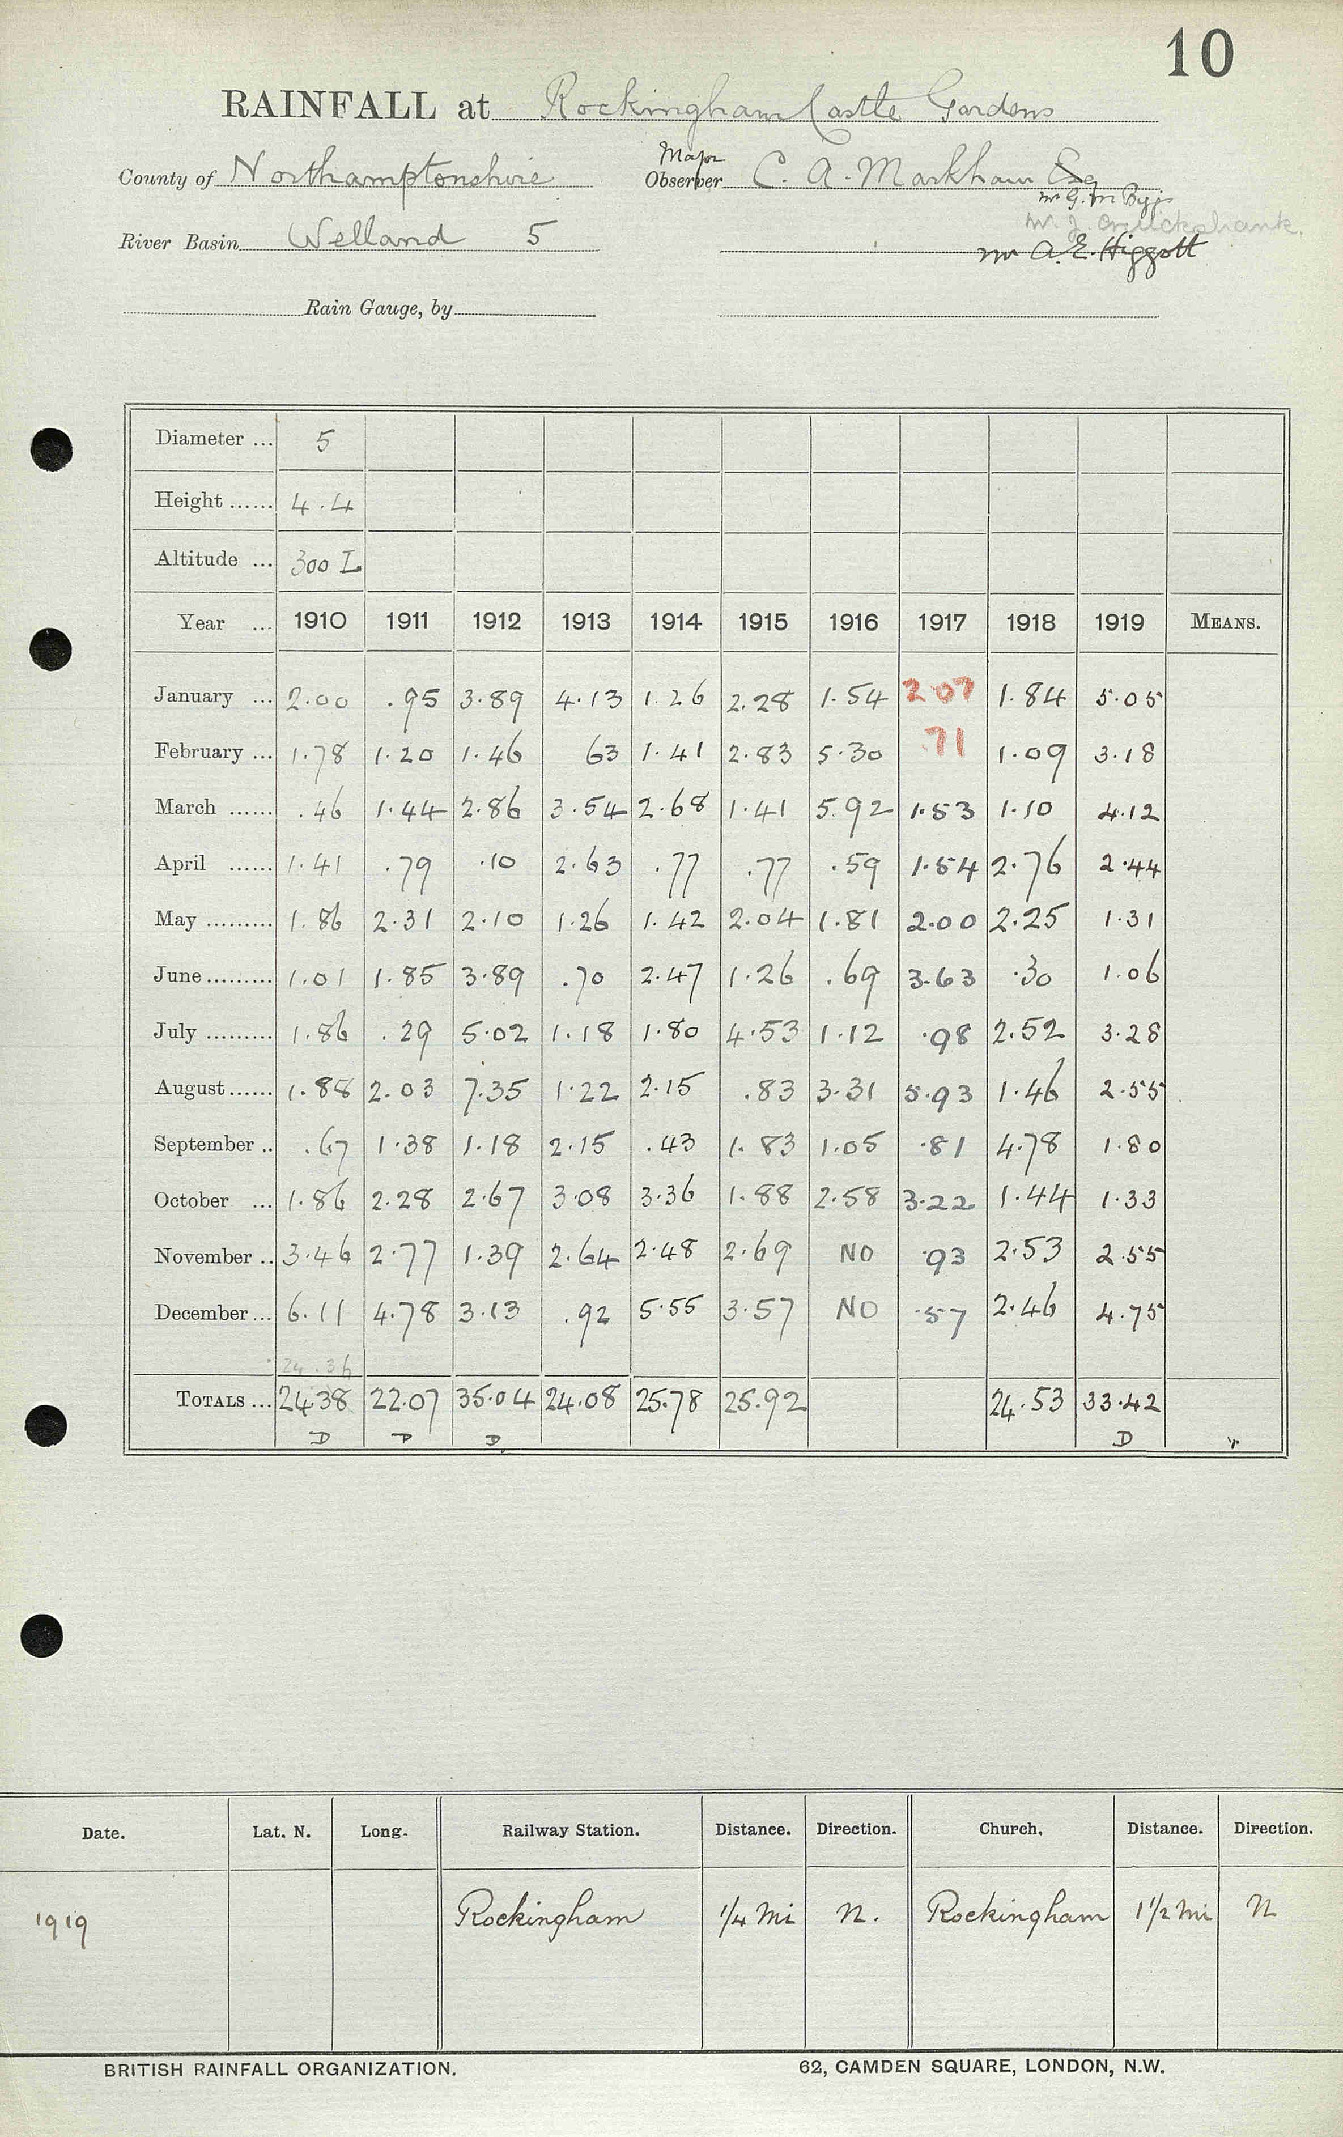 10
RAINFALL at Rockingham Castle Gardens
County of Northamptonshire Major Observer C. A. Markham Esq
Mr G. M.
River Basin Welland 5 W. J. Cruickshank.
Mr A. E. Higgott
Rain Gauge, by
Diameter ... 5
Height ...... 4.4
Altitude ... 300 L
Year ... 1910 1911 1912 1913 1914 1915 1916 1917 1918 1919 MEANS.
January ... 2.00 .95 3.89 4.13 1.26 2.28 1.54 2.07 1.84 5.05
February ... 1.78 1.20 1.46 63 1.41 2.83 5.30 .71 1.09 3.18
March ...... .46 1.44 2.86 3.54 2.68 1.41 5.92 1.53 1.10 4.12
April ...... 1.41 .79 .10 2.63 .77 .77 .59 1.54 2.76 2.44
May ......... 1.86 2.31 2.10 1.26 1.42 2.04 1.81 2.00 2.25 1.31
June ......... 1.01 1.85 3.89 .70 2.47 1.26 .69 3.63 .30 1.06
July ......... 1.86 .29 5.02 1.18 1.80 4.53 1.12 .98 2.52 3.28
August ...... 1.88 2.03 7.35 1.22 2.15 .83 3.31 5.93 1.46 2.55
September .. .67 1.38 1.18 2.15 .43 1.83 1.05 .81 4.78 1.80
October ... 1.86 2.28 2.67 3.08 3.36 1.88 2.58 3.22 1.44 1.33
November .. 3.46 2.77 1.39 2.64 2.48 2.69 NO .93 2.53 2.55
December ... 6.11 4.78 3.13 .92 5.55 3.57 NO .57 2.46 4.75
24.36
TOTALS ... 2438 22.07 35.04 24.08 25.78 25.92 24.53 33.42
D D D D
Date. Lat. N. Long. Railway Station. Distance. Direction. Church. Distance. Direction.
1919 Rockingham 1/4 Mi N. Rockingham 1 1/2 Mi N
BRITISH RAINFALL ORGANIZATION. 62, CAMDEN SQUARE, LONDON, N.W.